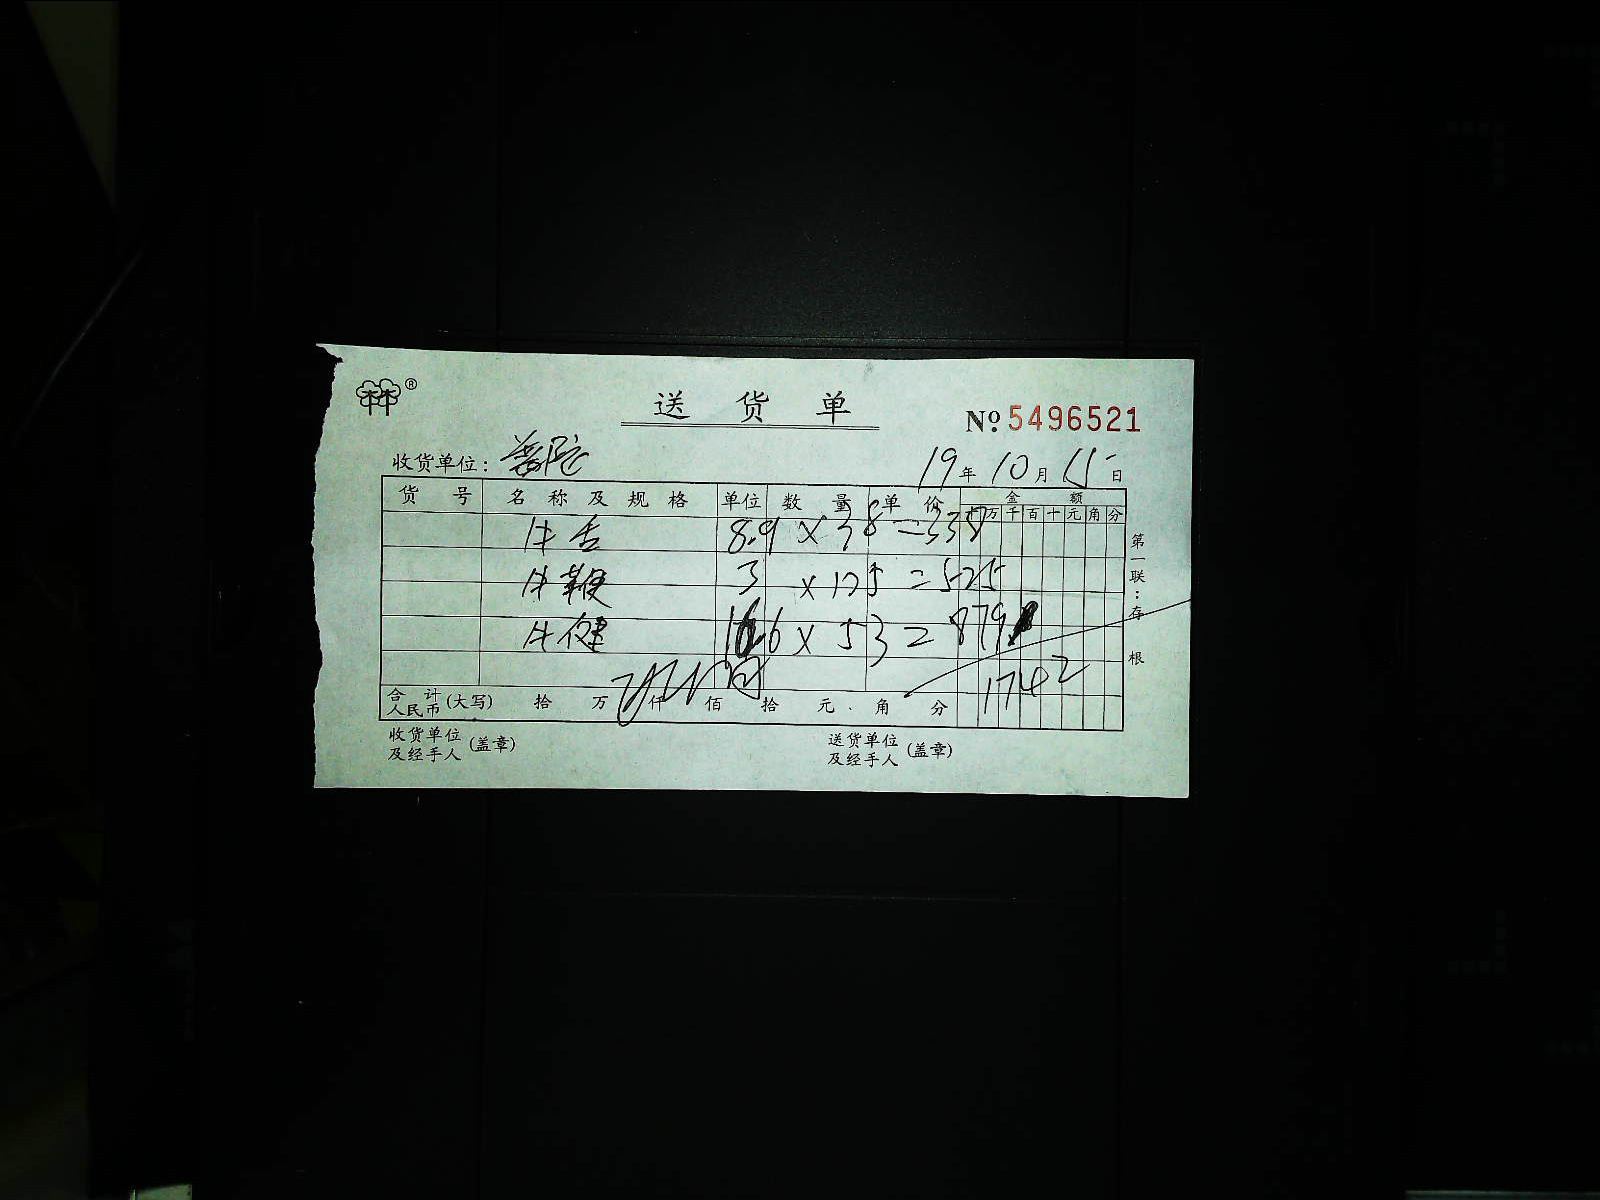 ® 送货单 № 5496521
收货单位: 普陀 19年10月15日
货号 名称及规格 单位 数量 单价 金额
万千百十元角分
牛舌 8.9 × 38 = 338
牛鞭 3 × 175 = 525
牛健 16.6 × 53 = 879
1742
合计人民币(大写) 拾 万 仟 佰 拾 元 角 分
收货单位及经手人(盖章) 送货单位及经手人(盖章)
第一联:存根